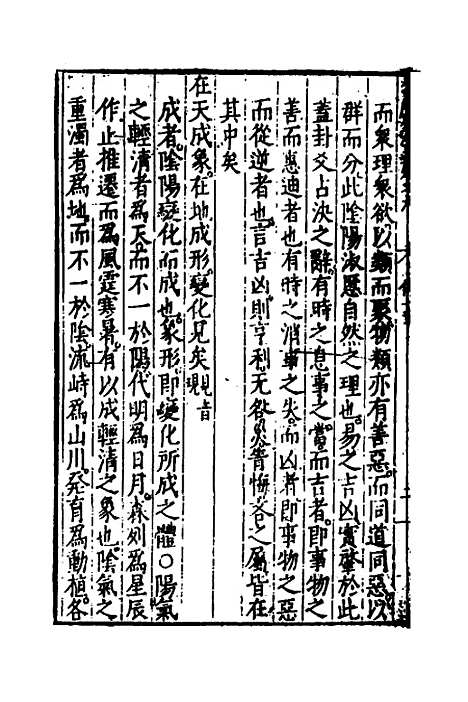 而衆理衆欲以類而聚物類亦有善惡而同道同惡以
群而分此陰陽淑慝自然之理也易之吉凶實肇於此
蓋卦爻占決之辭有時之息事之當而吉者即事物之
善而惠迪者也有時之消事之失而凶者即事物之惡
而從逆者也言吉凶則亨利无咎災眚悔吝之屬皆在
其中矣
在天成象在地成形變化見矣 見音現
成者陰陽變化而成也象形即變化所成之體○陽氣
之輕清者爲天而不一於陽代明爲日月森列爲星辰
作止推遷而爲風霆寒暑有以成輕清之象也陰氣之
重濁者爲地而不一於陰流峙爲山川發育爲動植各